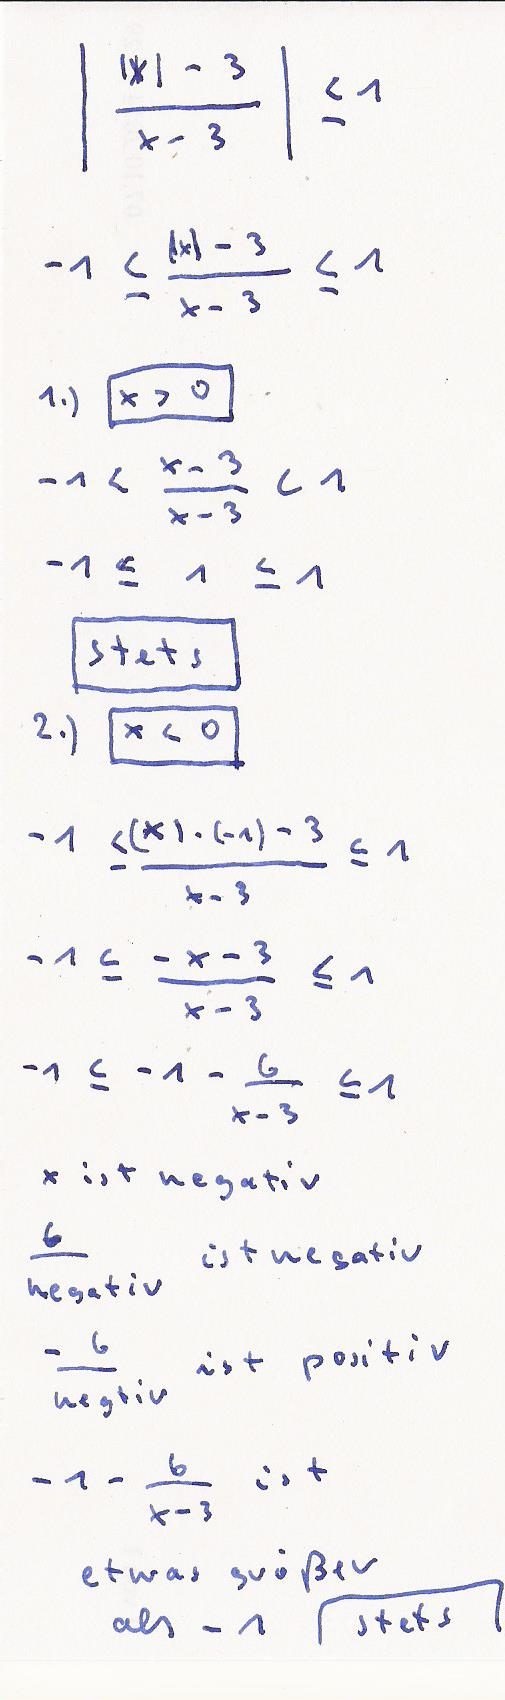 | (|x| - 3) / (x - 3) | ≤ 1
-1 ≤ (|x| - 3) / (x - 3) ≤ 1
1.) x > 0
-1 < (x - 3) / (x - 3) < 1
-1 ≤ 1 ≤ 1
stets
2.) x < 0
-1 ≤ ((x) · (-1) - 3) / (x - 3) ≤ 1
-1 ≤ (-x - 3) / (x - 3) ≤ 1
-1 ≤ -1 - 6 / (x - 3) ≤ 1
x ist negativ
6 / negativ ist negativ
- 6 / negtiv ist positiv
-1 - 6 / (x - 3) ist
etwas größer
als -1 stets